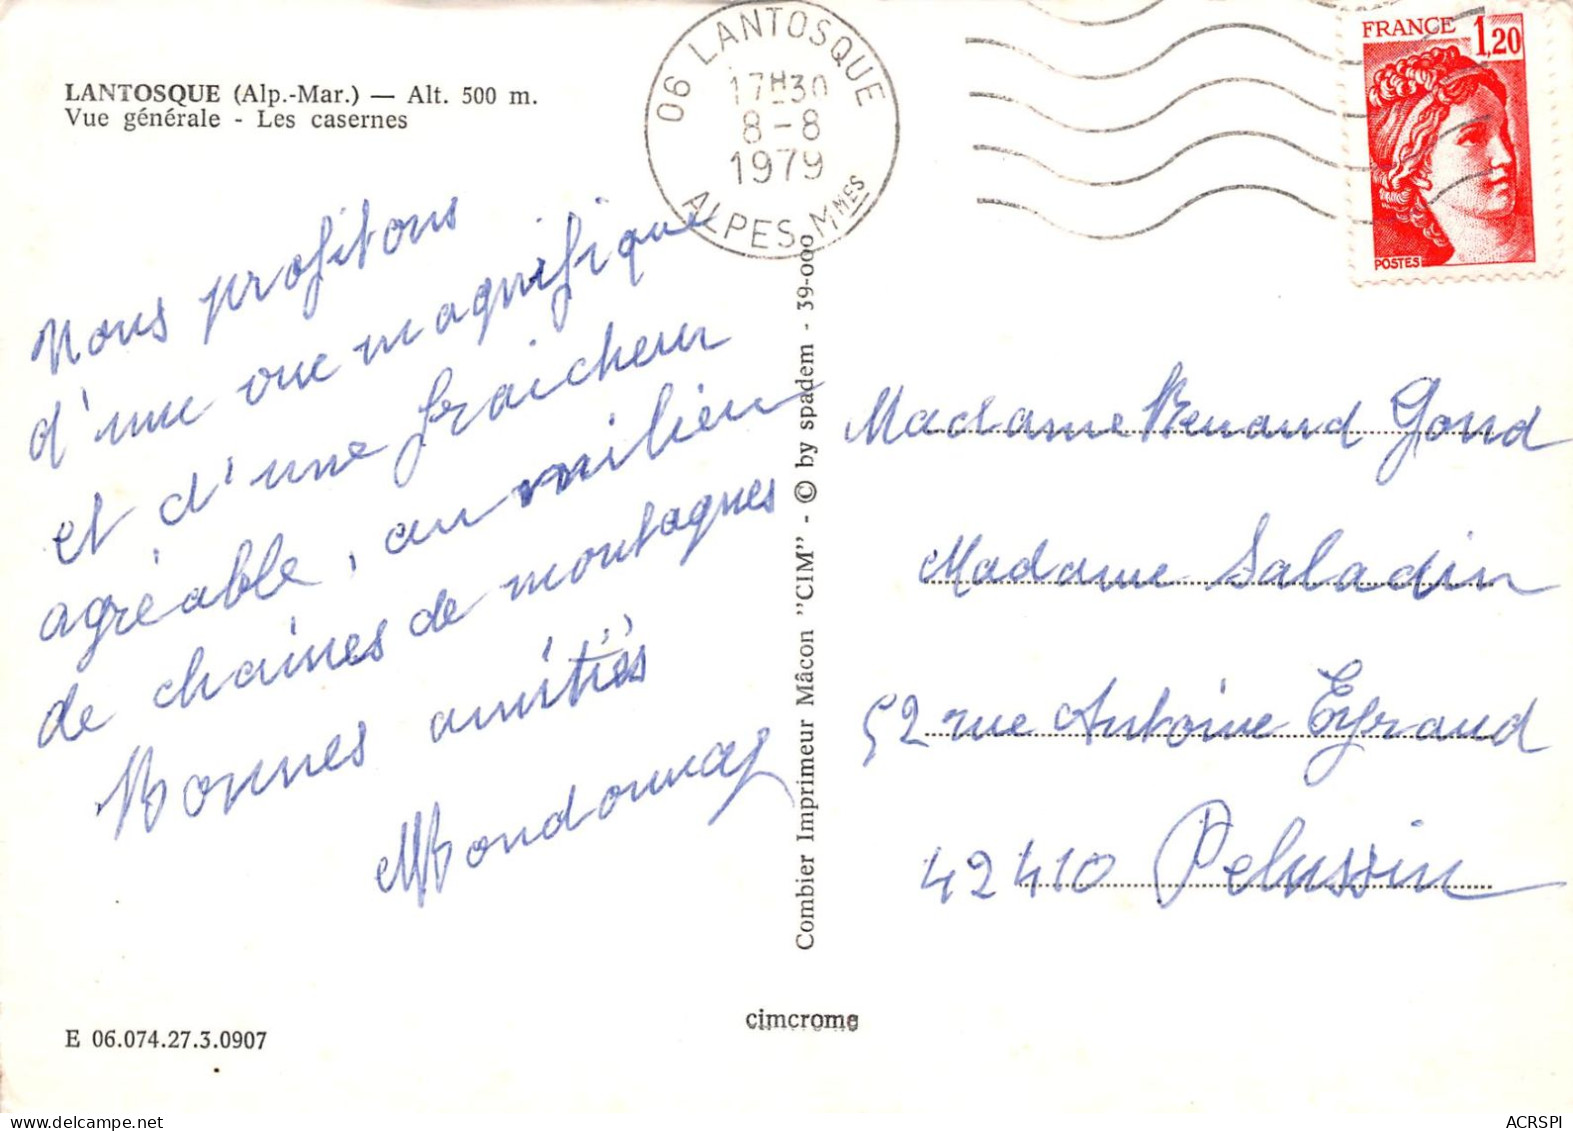 LANTOSQUE (Alp.-Mar.) — Alt. 500 m.
Vue générale - Les casernes
06 LANTOSQUE
17H30
8-8
1979
ALPES Mmes
FRANCE 1,20
POSTES
Nous profitons
d'une vue magnifique
et d'une fraicheur
agréable, au milieu
de chaines de montagnes
Bonnes amitiés
Combier Imprimeur Mâcon "CIM" - © by spadem - 39-000
Madame Renaud Gond
Madame Saladin
52 rue Antoine Eyraud
42410 Pelussin
cimcrome
E 06.074.27.3.0907
ACRSPI